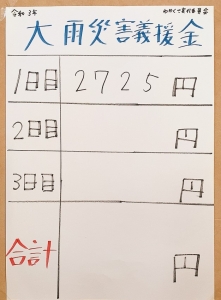 令和3年
大雨災害義援金
1日目 2725円
2日目 円
3日目 円
合計 円